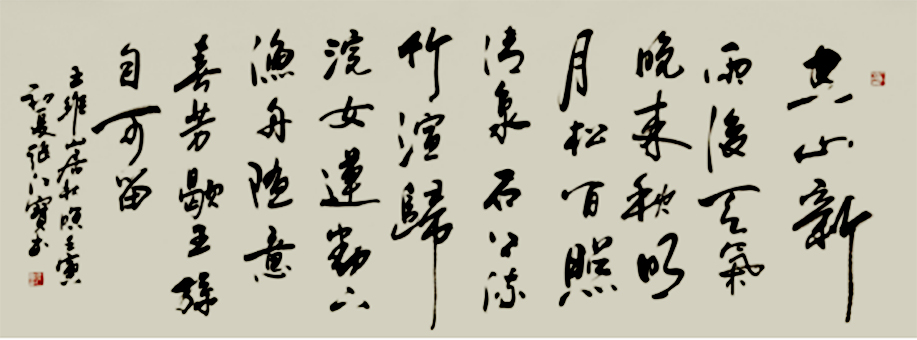 空山新
雨後天氣
晚来秋明
月松間照
清泉石上流
竹喧歸
浣女蓮動下
漁舟隨意
春芳歇王孫
自可留
王維山居秋暝壬寅
初夏寶书